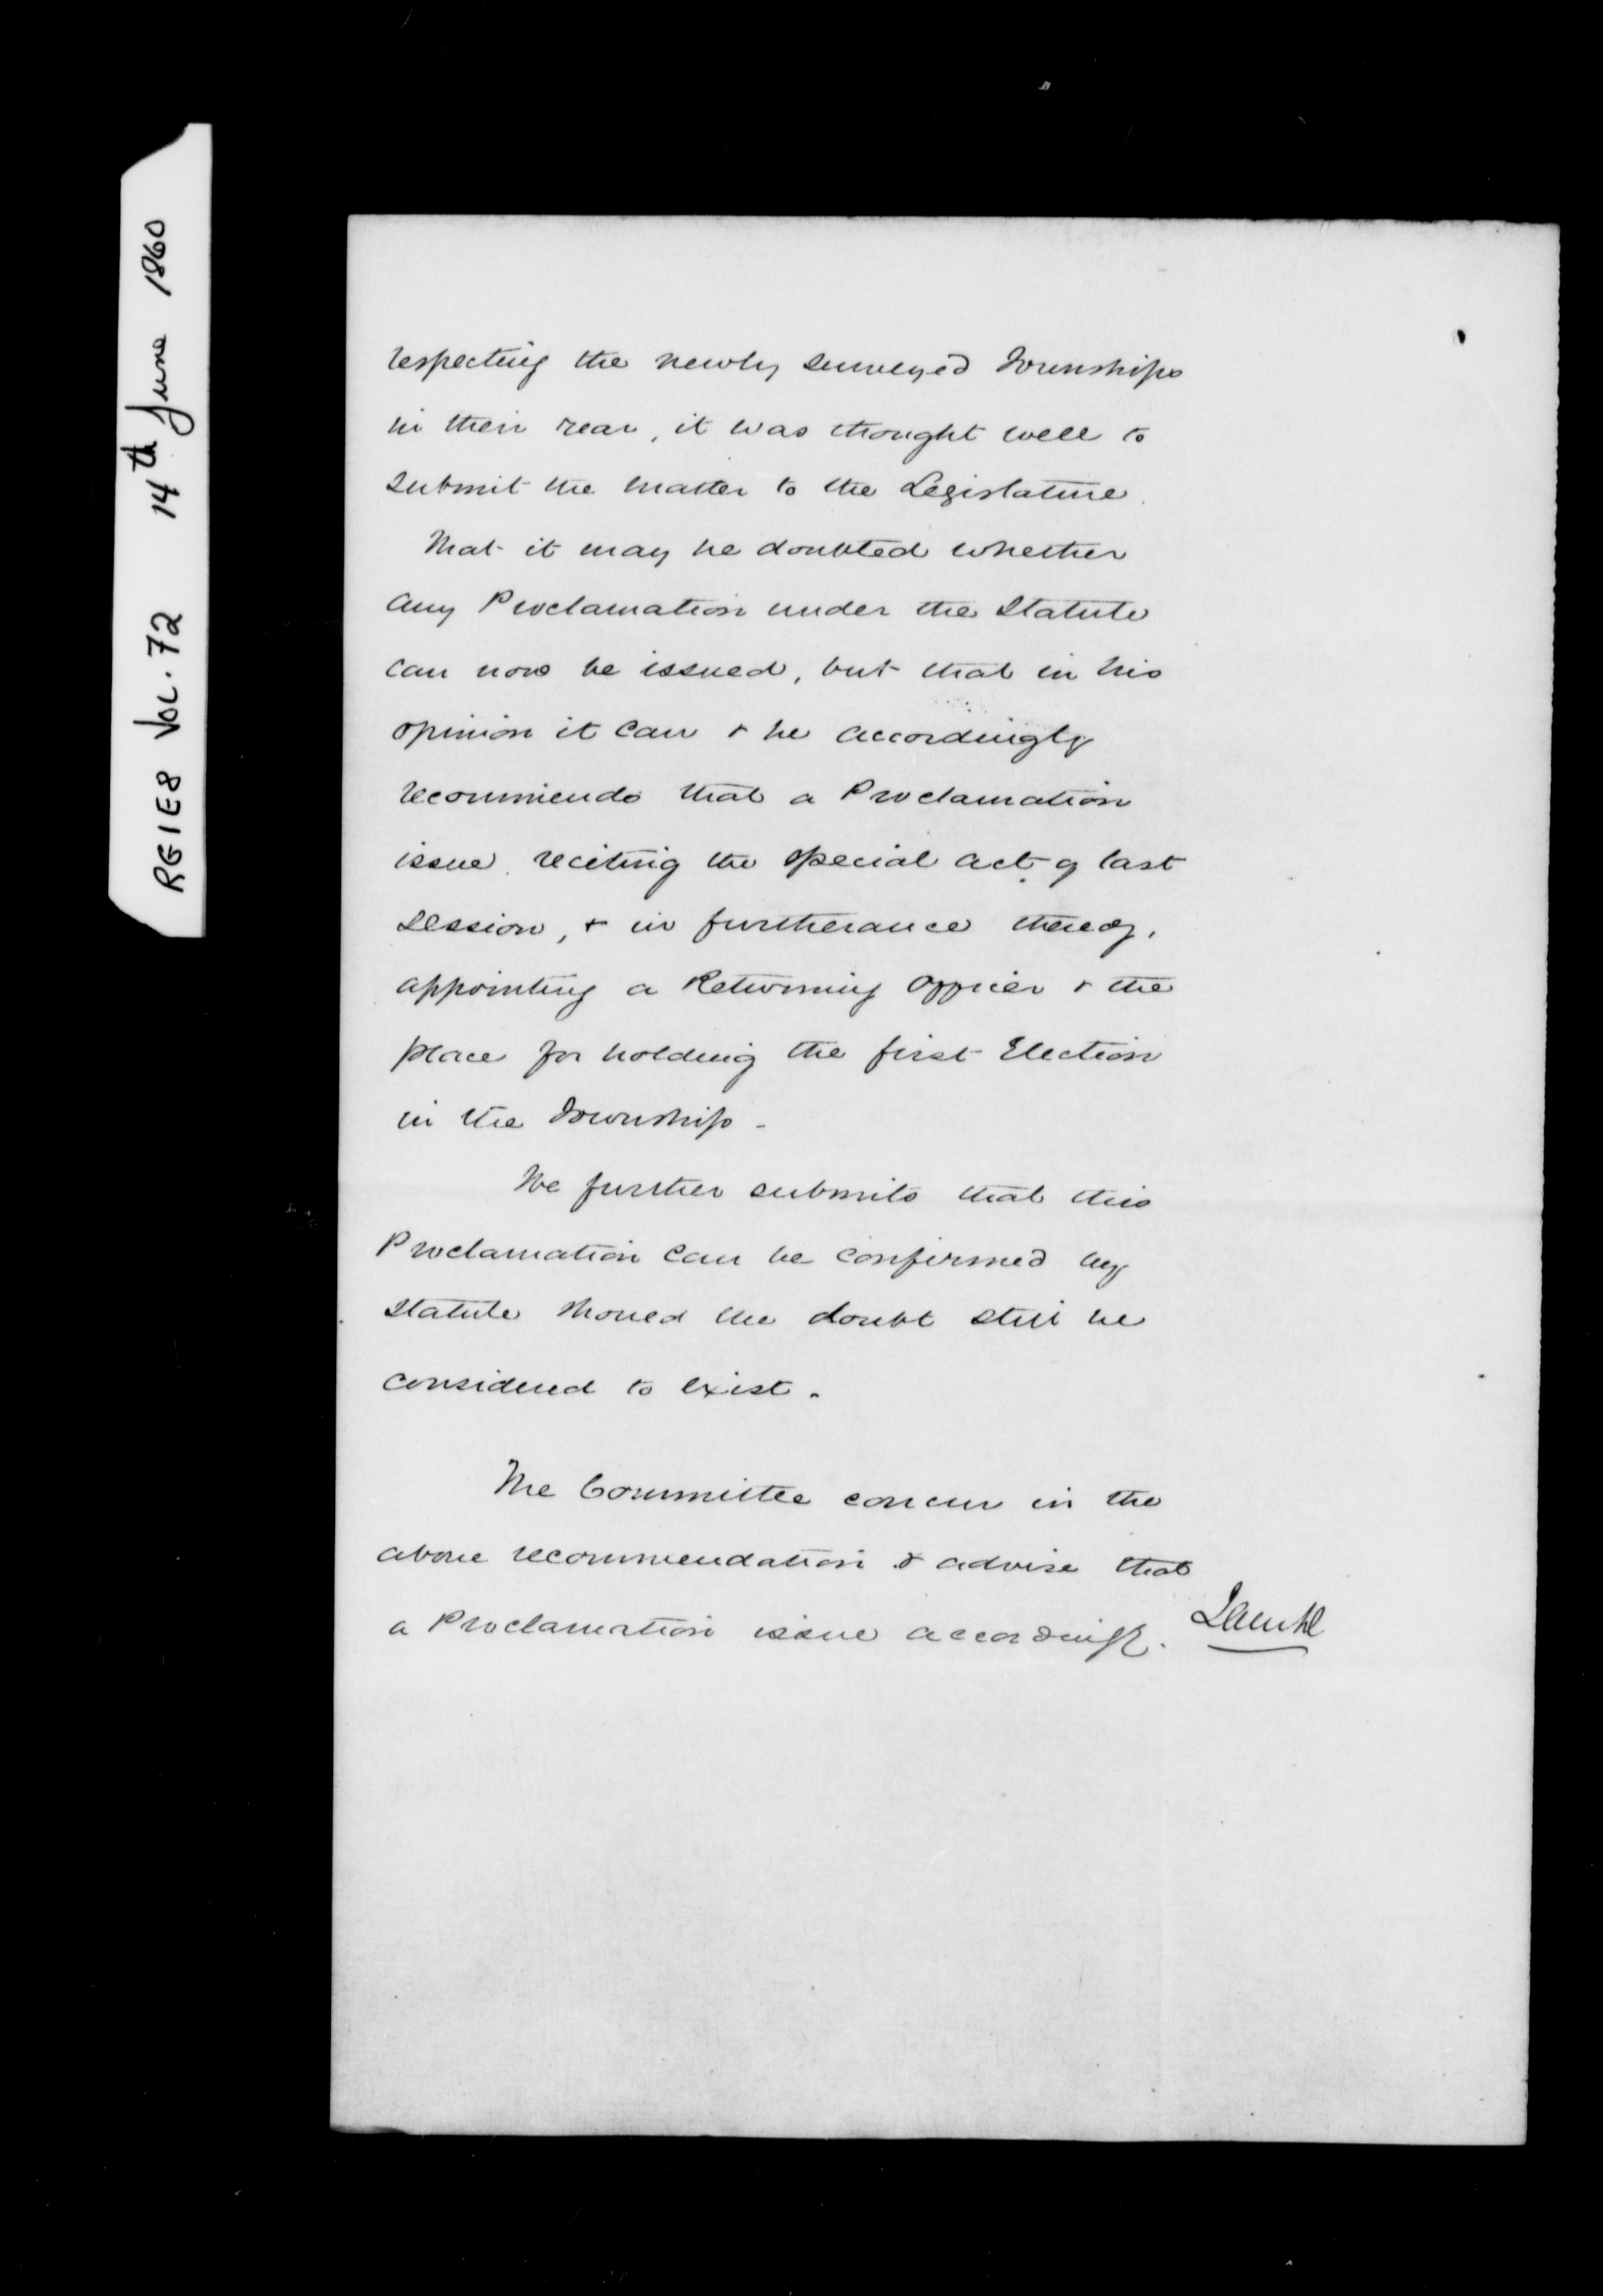 RG1E8 Vol. 72 14th June 1860
respecting the newly surveyed Townships
in their rear, it was thought well to
submit the matter to the Legislature.
That it may be doubted whether
any Proclamation under the Statute
can now be issued, but that in his
opinion it can & he accordingly
recommends that a Proclamation
issue reciting the special act of last
session, & in furtherance thereof,
appointing a Returning Officer & the
place for holding the first Election
in the Township -
He further submits that this
Proclamation can be confirmed by
Statute should the doubt still be
considered to exist.
The Committee concur in the
above recommendation & advise that
a Proclamation issue accordingly.